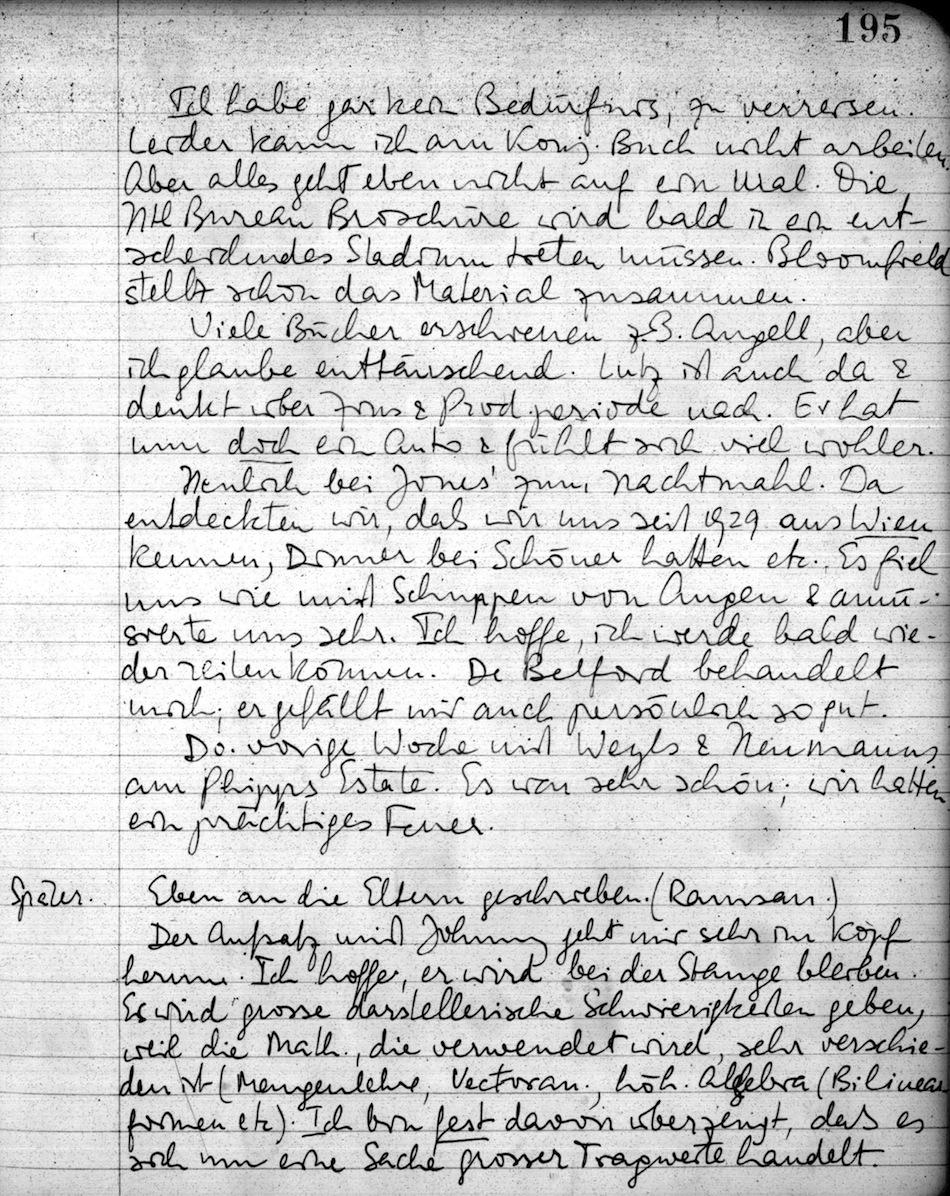 195
Ich habe gar kein Bedürfnis, zu verreisen.
Leider kann ich am Konj. Buch nicht arbeiten.
Aber alles geht eben nicht auf ein Mal. Die
Bureau Broschüre wird bald in ein ent-
scheidendes Stadium treten müssen. Bloomfield
stellt schön das Material zusammen.
Viele Bücher erschienen z.B. Angell, aber
ich glaube enttäuschend. Lutz ist auch da &
denkt über Zins & Prod.periode nach. Er hat
nun doch ein Auto & fühlt sich viel wohler.
Neulich bei Jones' zum Nachtmahl. Da
entdeckten wir, daß wir uns seit 1929 aus Wien
kennen, Dinner bei Schöner hatten etc. Es fiel
uns wie mit Schuppen von Augen & amü-
sierte uns sehr. Ich hoffe, ich werde bald wie-
der reiten können. De Belford behandelt
mich; er gefällt mir auch persönlich so gut.
Do. vorige Woche mit Weyls & Neumanns
am Phipps Estate. Es war sehr schön; wir hatten
ein prächtiges Feuer.
Später. Eben an die Eltern geschrieben. (Ramsau.)
Der Aufsatz mit Johnny geht mir sehr im Kopf
herum. Ich hoffe, er wird bei der Stange bleiben.
Es wird grosse darstellerische Schwierigkeiten geben,
weil die Math., die verwendet wird, sehr verschie-
den ist (Mengenlehre, Vectoran., höh. Algebra (Bilinear
formen etc). Ich bin fest davon überzeugt, daß es
sich um eine Sache grosser Tragweite handelt.